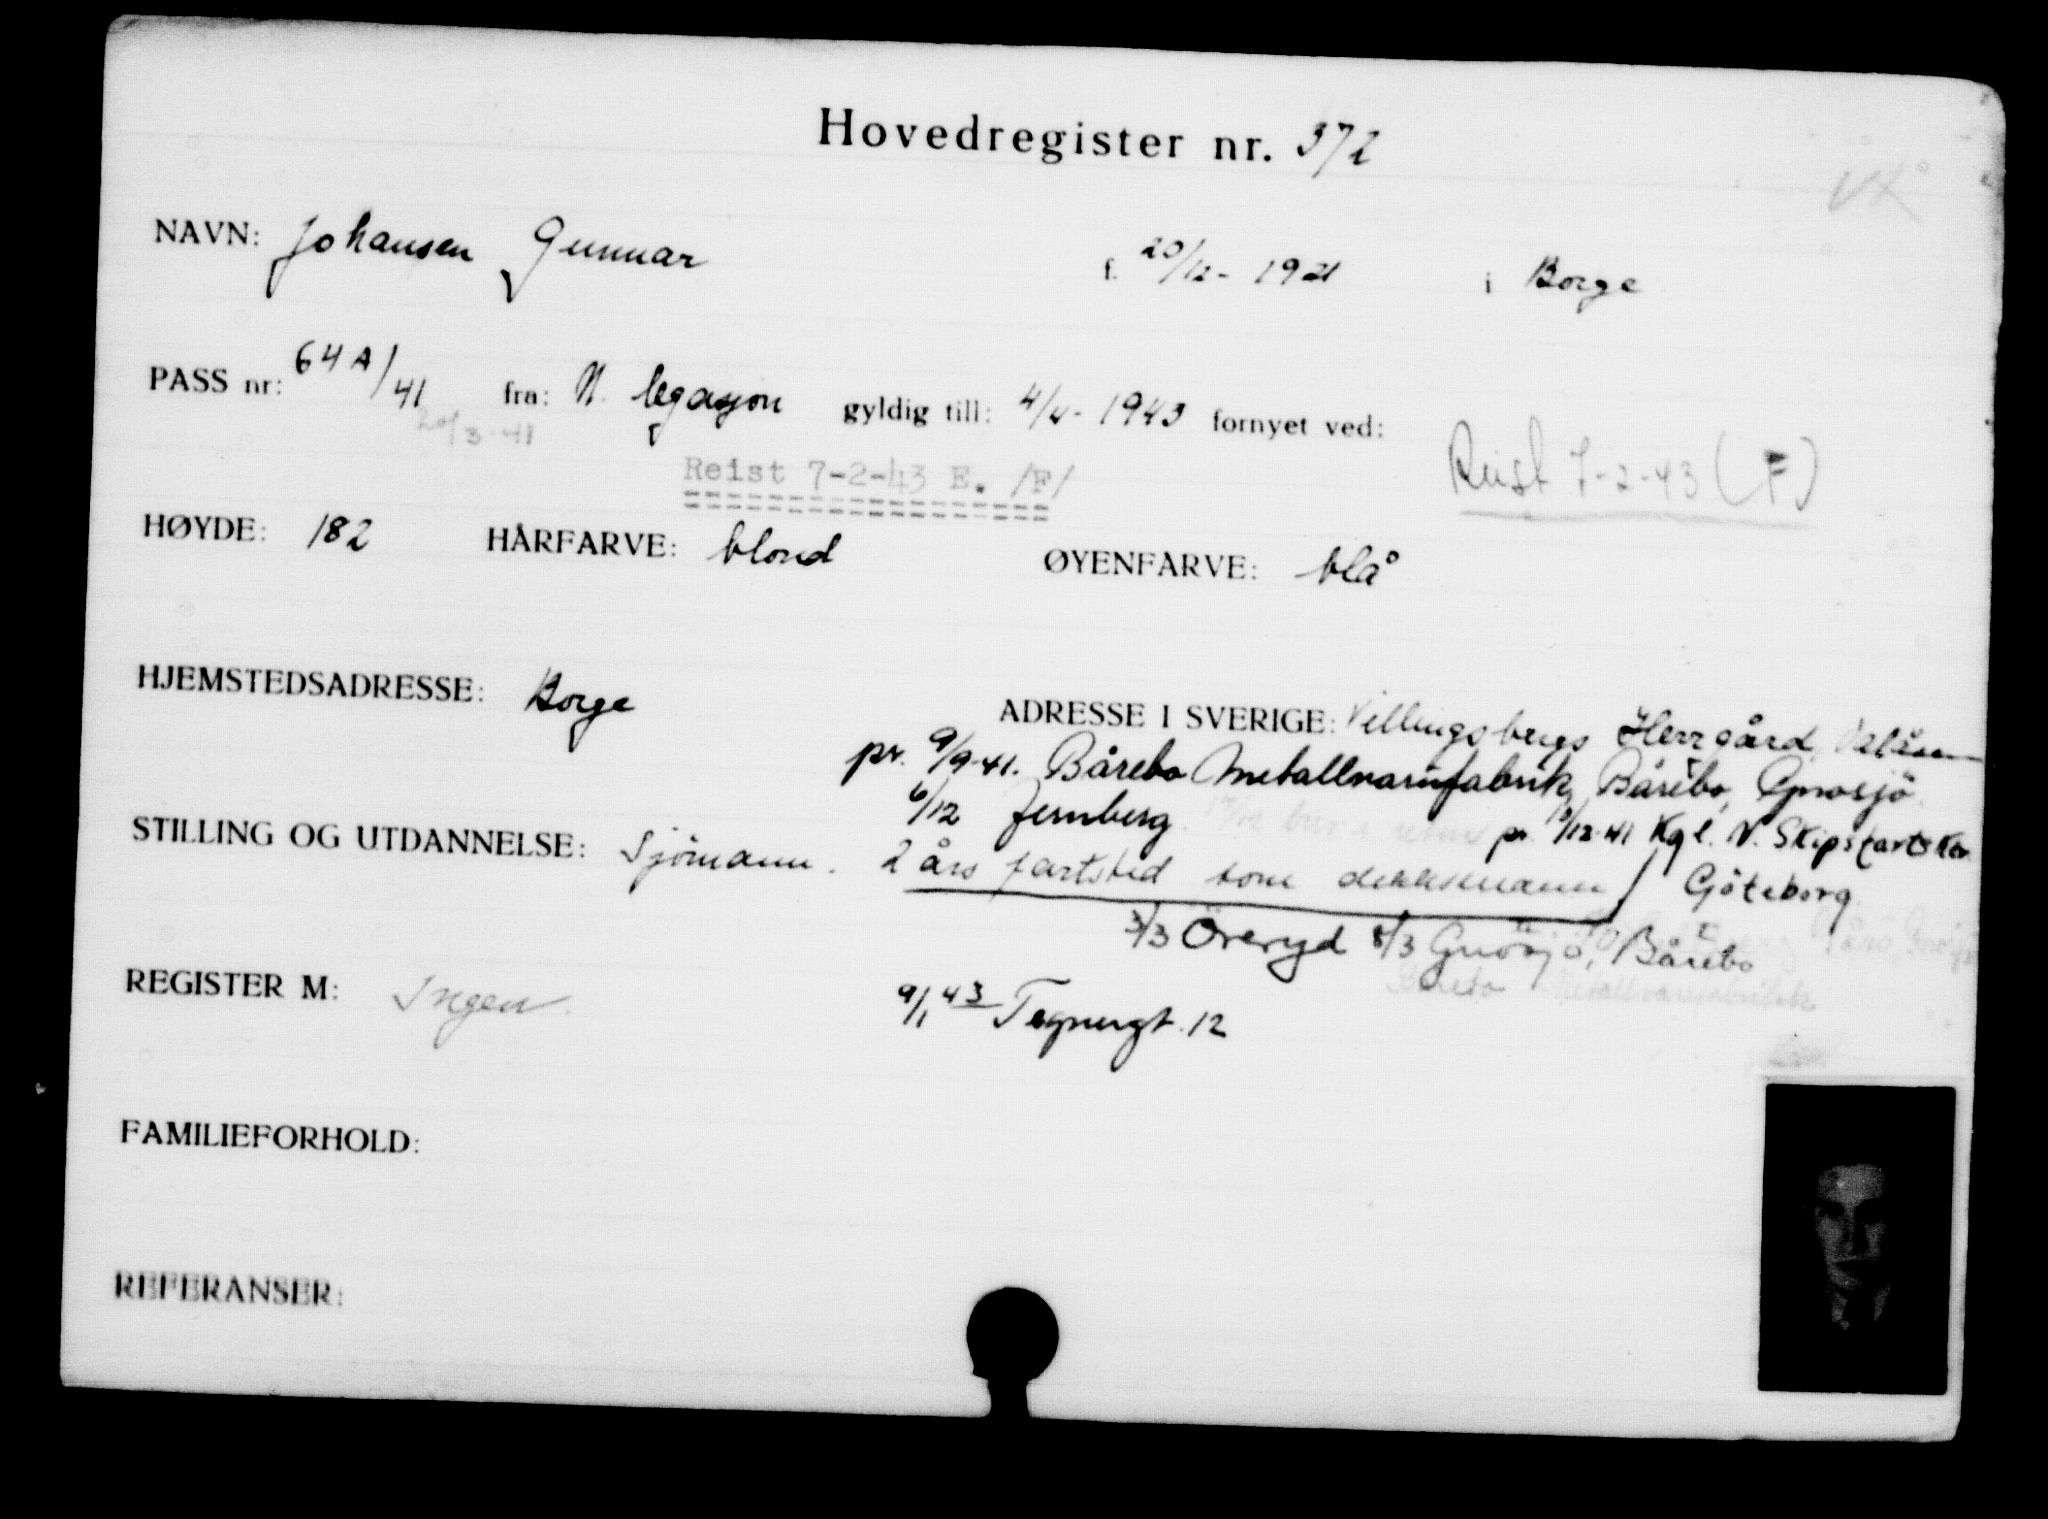 Hovedregister nr. 372
NAVN: Johansen Gunnar f. 20/12 - 1921 i Borge
PASS nr: 64A/41 fra: N. legasjon gyldig till: 4/4 - 1943 fornyet ved:
20/3-41
Reist 7-2-43 E. /F/
Reist 7-2-43 (F)
HØYDE: 182 HÅRFARVE: blond ØYENFARVE: blå
HJEMSTEDSADRESSE: Borge ADRESSE I SVERIGE: Villingsbergs Herrgård
pr. 9/9-41. Bårebo Metallvarufabrik, Bårebo, Gnosjö.
6/12 Jernberg. pr. 13/12-41 Kgl. N. Skipsfartsktr.
Göteborg
STILLING OG UTDANNELSE: Sjömann. 2 års fartstid som dekksmann
3/3 Öreryd 8/3 Gnosjö, Bårebo
Bårebo Metallvarufabrikk
REGISTER M: Ingen.
9/1 43 Tegnergt. 12
FAMILIEFORHOLD:
REFERANSER: